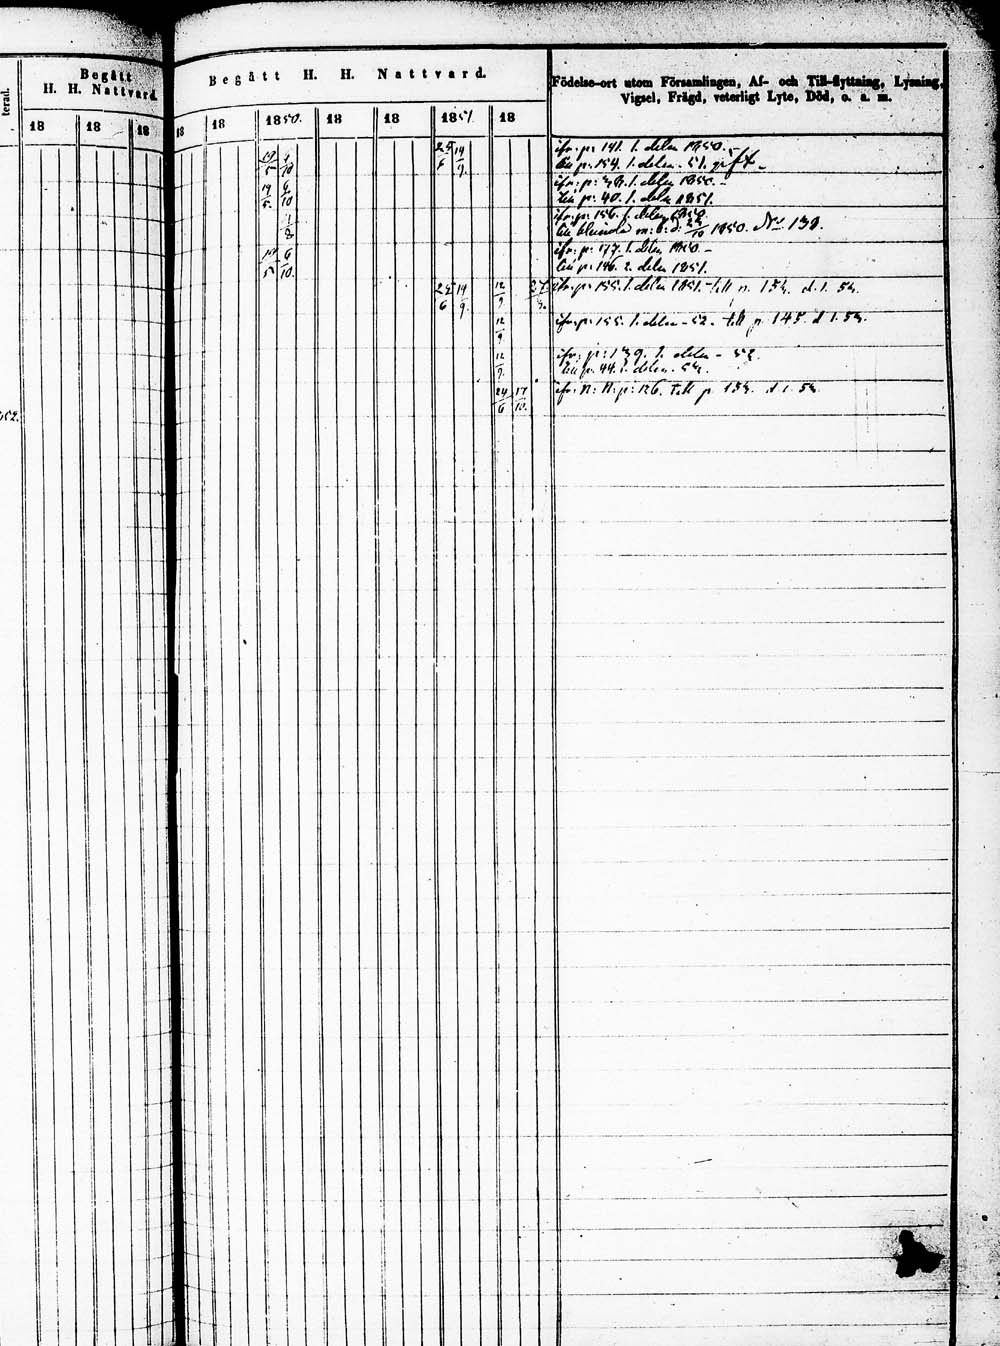 terad.
Begått
H. H. Nattvard
18 18 18
Begått H. H. Nattvard.
Födelse-ort utom Församlingen, Af- och Till-flyttning, Lysning,
Vigsel, Frägd, veterligt Lyte, Död, o. a. m.
18 18 1850. 18 18 1851 18
ifr. p: 141. 1. delen 1850. -
till p: 154. 1. delen. 51. gift -
19/5 6/10
14/9.
ifr: p: 1. delen 1850. -
till p: 40. 1. delen 1851.
19/5. 6/10
ifr. p: 156. 1. delen 1850.
till 1850. No 130.
1/8
ifr: p: 177. 1. delen 1850. -
till p: 146. 2. delen 1851.
19/5 6/10.
14/9. 12/9
ifr. p: 155. 1. delen 1851. till p. 154. d. 1. 54.
12/9
ifr. p: 155. 1. delen - 52. till p. 145. d. 1. 54.
12/9.
ifr: p: 139. 1. delen - 52.
till p. 44. 1. delen. 54.
24/6 17/10.
ifr. N: N: p: 126. till p. 154. d. 1. 54.
52.